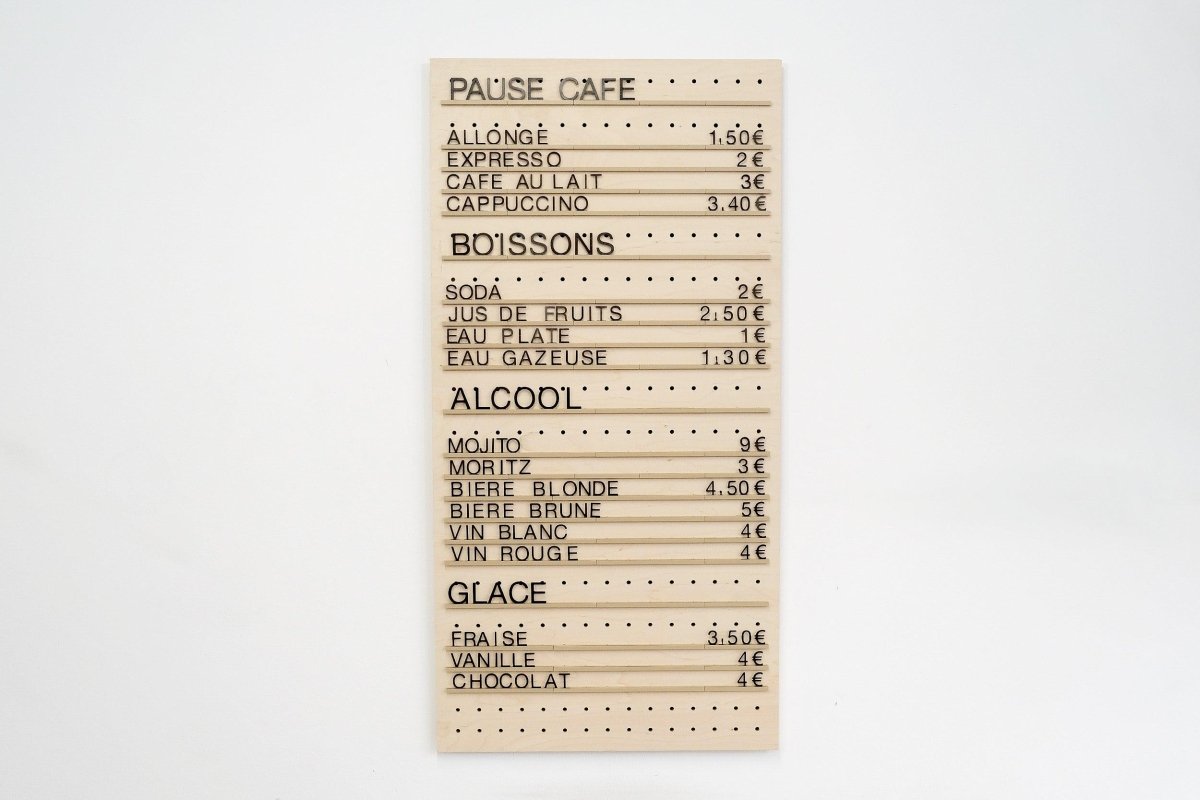 PAUSE CAFE
ALLONGE 1,50€
EXPRESSO 2€
CAFE AU LAIT 3€
CAPPUCCINO 3.40€
BOISSONS
SODA 2€
JUS DE FRUITS 2,50€
EAU PLATE 1€
EAU GAZEUSE 1,30€
ALCOOL
MOJITO 9€
MORITZ 3€
BIERE BLONDE 4,50€
BIERE BRUNE 5€
VIN BLANC 4€
VIN ROUGE 4€
GLACE
FRAISE 3,50€
VANILLE 4€
CHOCOLAT 4€